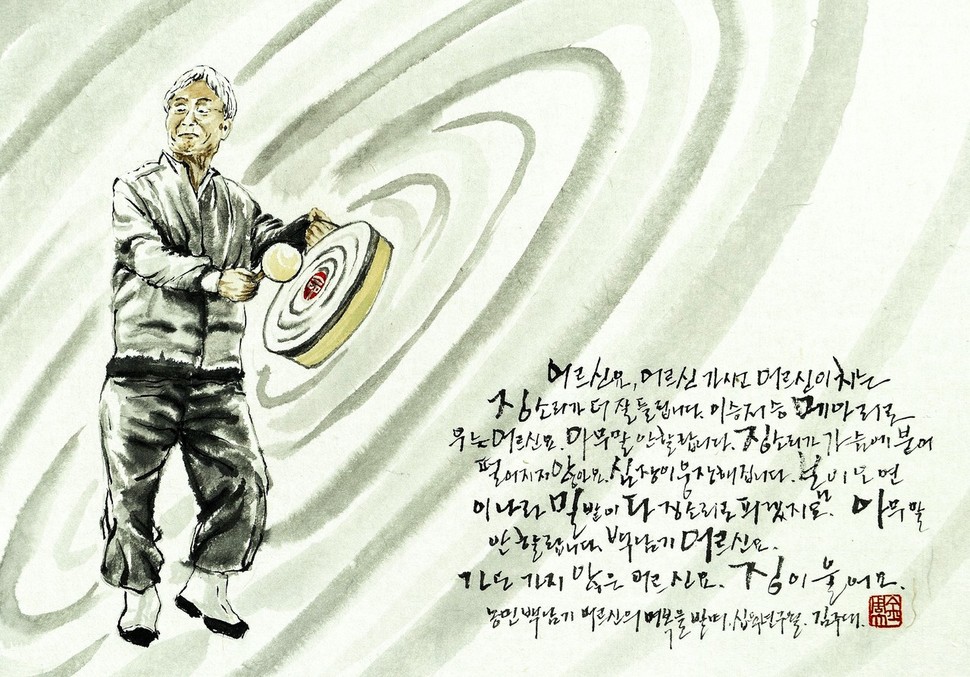 어르신요, 어르신 어르신이 치는
징소리가 더 잘 들립니다. 이승저승 메아리로
우는 어르신요. 아무말 안할랍니다. 징소리가 가슴에 붙어
떨어지지 않아요. 심장이 웅장해집니다. 봄이 오면
이 나라 밀밭이 다 징소리로 피겠지요. 아무 말
안 할랍니다. 백남기 어르신요.
가도 가지 않은 어르신요. 징이 울어요.
농민 백남기 어르신의 명복을 빌며. 김주대.